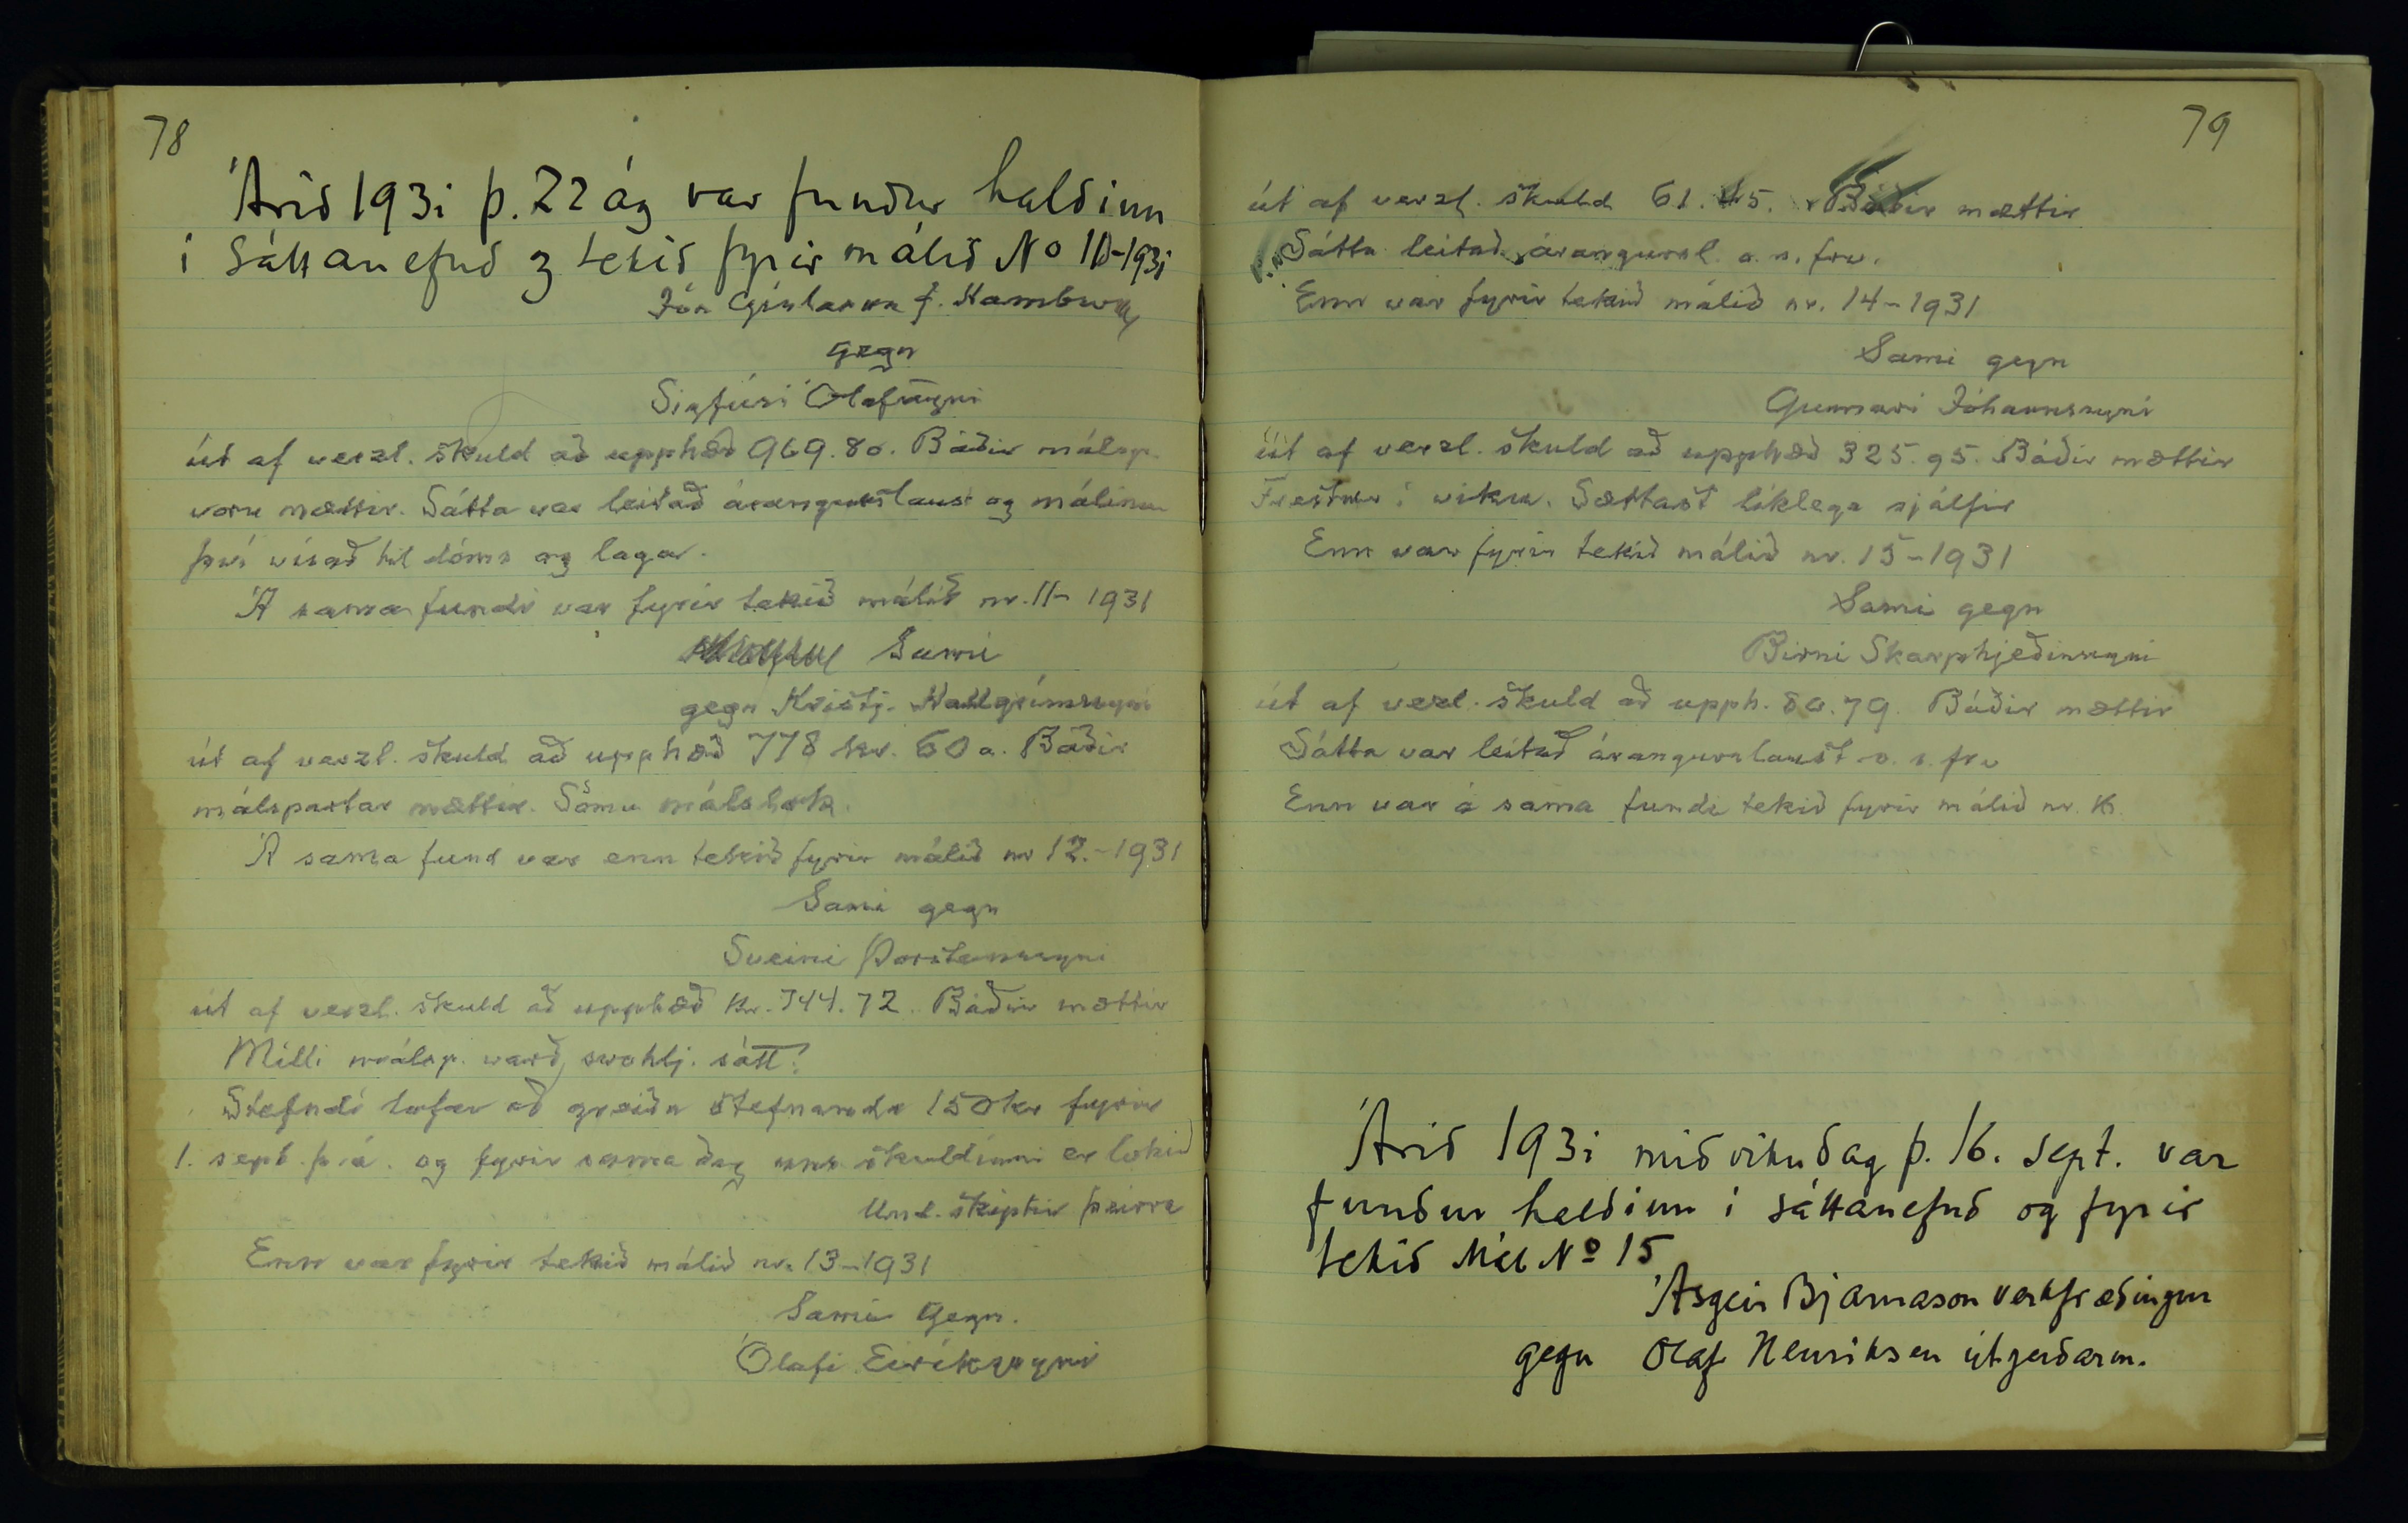 78
Árið 1931 þ. 22 ág var fundur haldinn
í Sáttanefnd og tekið fyrir málið No 10-1931
Jón Gíslason f. Hamburg
gegn
Sigfúsi Ólafssyni
út af verzl. skuld að upphæð 969.80. Báðir málsp.
voru mættir. Sátta var leitað árangurslaust og málinu
því vísað til dóms og laga.
Á sama fundi var fyrir tekið málið nr. 11-1931
Sami
gegn Kristj. Hallgrímssyni
út af verzl. skuld að upphæð 778 kr. 60 a. Báðir
málspartar mættir. Sömu málslok.
Á sama fund var enn tekið fyrir málið nr 12.-1931
Sami gegn
Sveini Þorsteinssyni
út af verzl. skuld að upphæð kr. 744.72. Báðir mættir
Milli málsp. varð svohlj. sátt:
Stefndi lofar að greiða stefnanda 150 kr fyrir
1. sept. þ.á. og fyrir sama dag unz skuldinni er lokið
Und. skiptir þeirra
Enn var fyrir tekið málið nr. 13-1931
Sami gegn.
Ólafi Eiríkssyni
79
út af verzl. skuld 61.45. Báðir mættir
Sátta leitað árangursl. o.s.frv.
Enn var fyrir tekið málið nr. 14-1931
Sami gegn
Gunnari Jóhannssyni
út af verzl. skuld að upphæð 325.95. Báðir mættir
Frestur í viku. Sættast líklega sjálfir
Enn var fyrir tekið málið nr. 15-1931
Sami gegn
Birni Skarphjeðinssyni
út af verzl. skuld að upph. 80.79. Báðir mættir
Sátta var leitað árangurslaust o.s.frv
Enn var á sama fundi tekið fyrir málið nr. 16.
Árið 1931 miðvikudag þ. 16. sept. var
fundur haldinn í sáttanefnd og fyrir
tekið Mál No 15
Ásgeir Bjarnason verkfræðingur
gegn Olaf Henriksen útgerðarm.